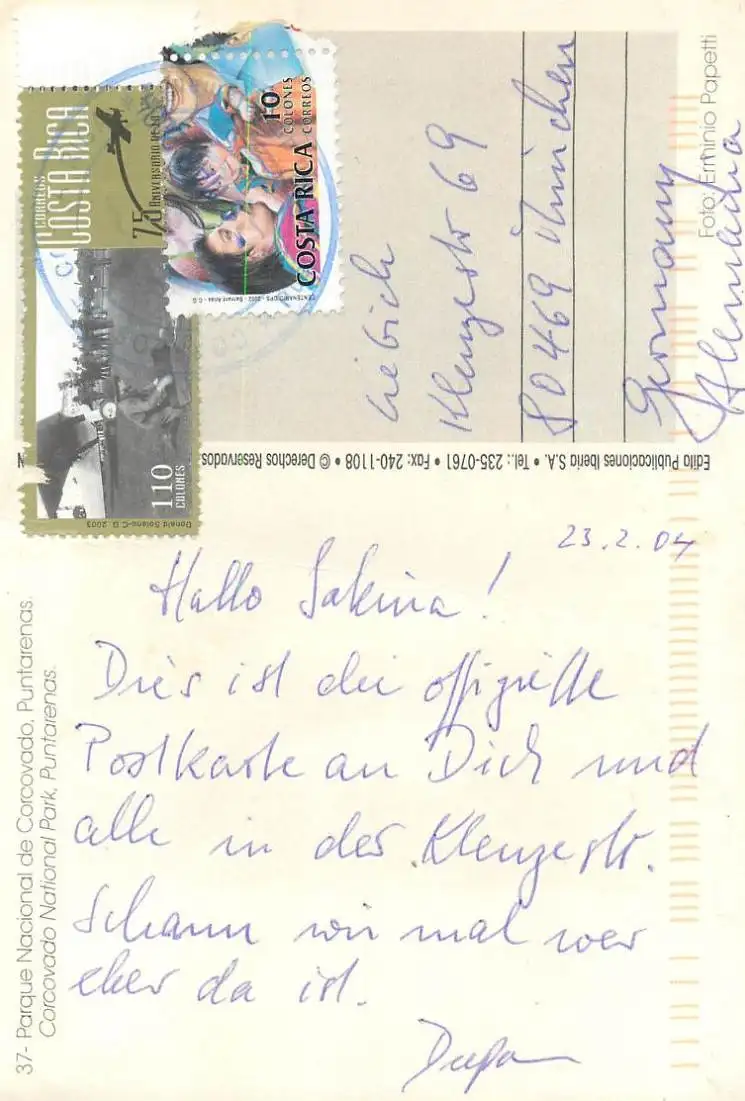 23.2.04
Hallo Sakina!
Dies ist die offizielle
Postkarte an Dich und
alle in der Klenzestr.
Schaun wir mal wer
eher da ist.
Liebich
Klenzestr 69
80469 München
Germany
Alemania
CORREOS
COSTA RICA
75 ANIVERSARIO
110
COLONES
Donald Solano-C.G. 2003
10
COLONES
COSTA RICA
CORREOS
Foto: Erminio Papetti
Edita Publicaciones Iberia S.A. • Tel.: 235-0761 • Fax: 240-1108 • © Derechos Reservados.
37- Parque Nacional de Corcovado, Puntarenas.
Corcovado National Park, Puntarenas.